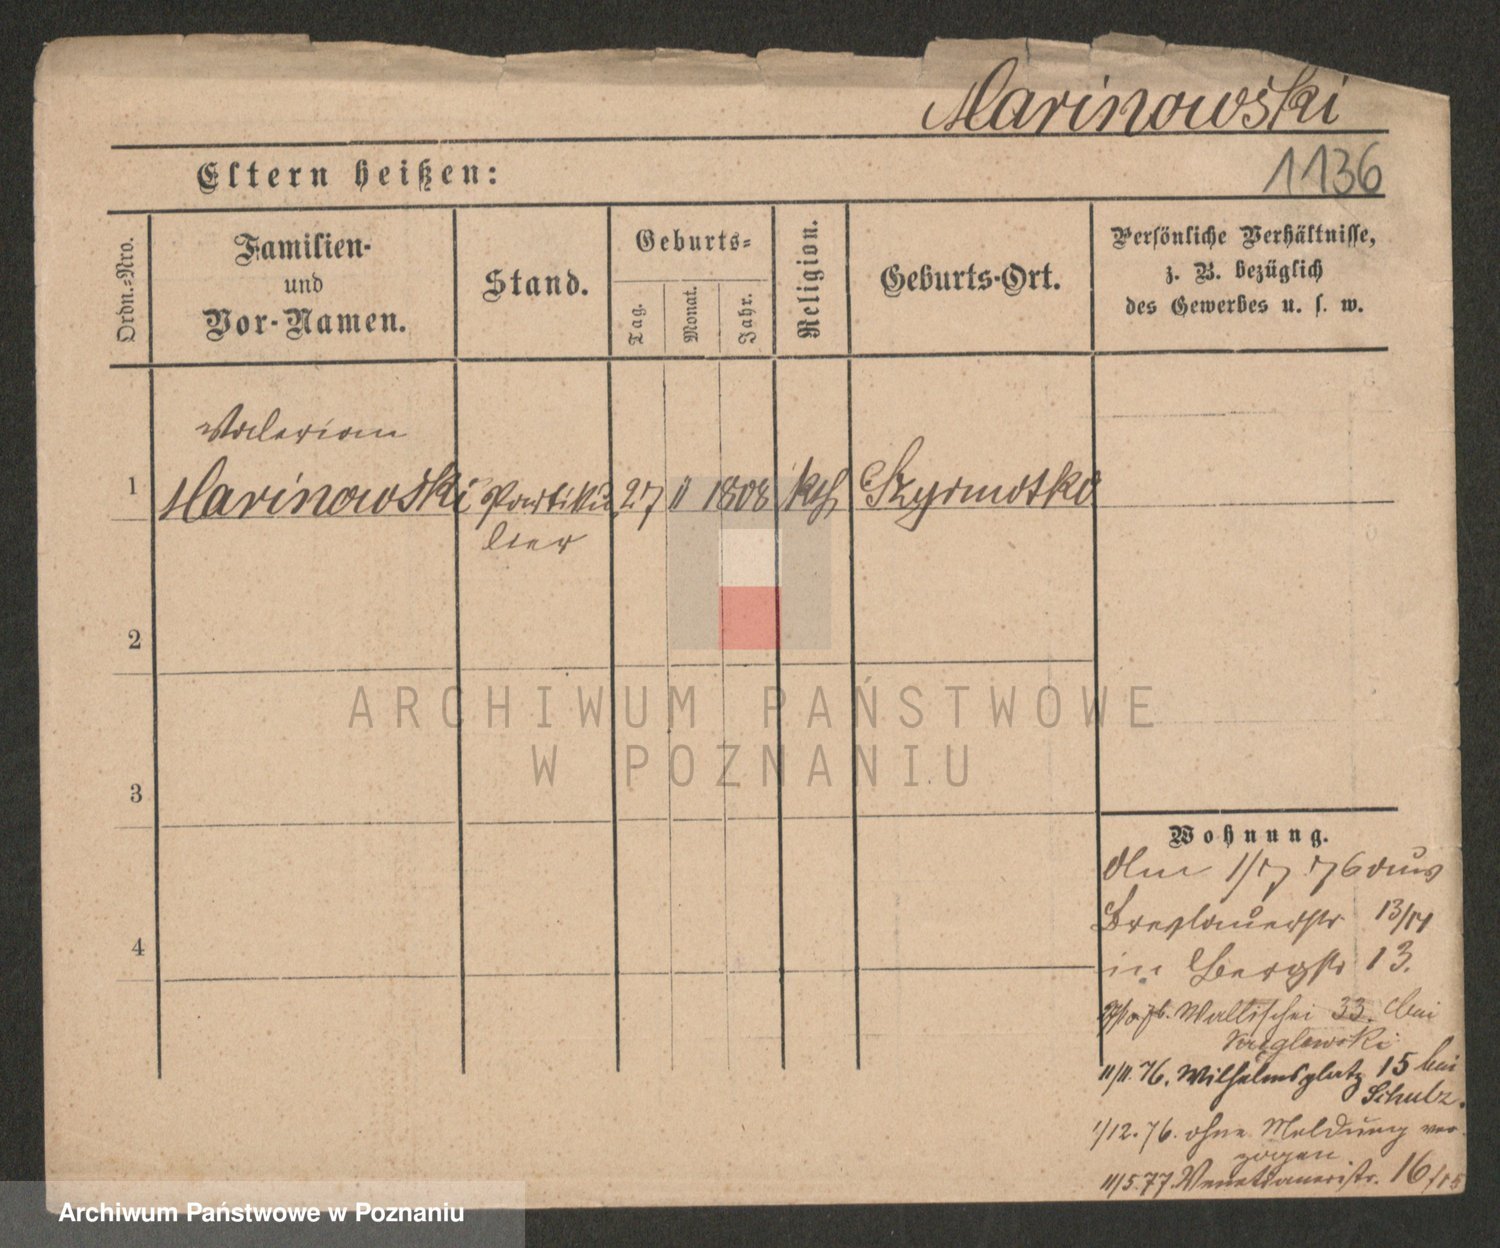 Marinowski
Eltern heißen:
1136
Ordn.-Nro.
Familien-
und
Vor-Namen.
Stand.
Geburts-
Tag.
Monat.
Jahr.
Religion.
Geburts-Ort.
Persönliche Verhältnisse,
z. B. bezüglich
des Gewerbes u. s. w.
Valerian
1 Marinowski Partiku 27 11 1808 kth
lier
2
3
4
ARCHIWUM PAŃSTWOWE
W POZNANIU
Wohnung.
76 aus
Breslauerstr 13/14
in Bergstr 13.
Wallischei 33. bei
11/11. 76. Wilhelmsplatz 15 bei
Schulz.
1/12. 76. ohne Meldung ver
zogen
11/5. 77. Venetianerstr. 16/15
Archiwum Państwowe w Poznaniu